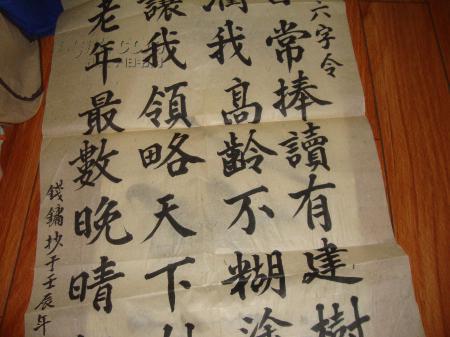 六字令
常捧讀有建樹
我高齡不糊
讓我領略天下
老年最數晚晴
錢鏞抄于壬辰年